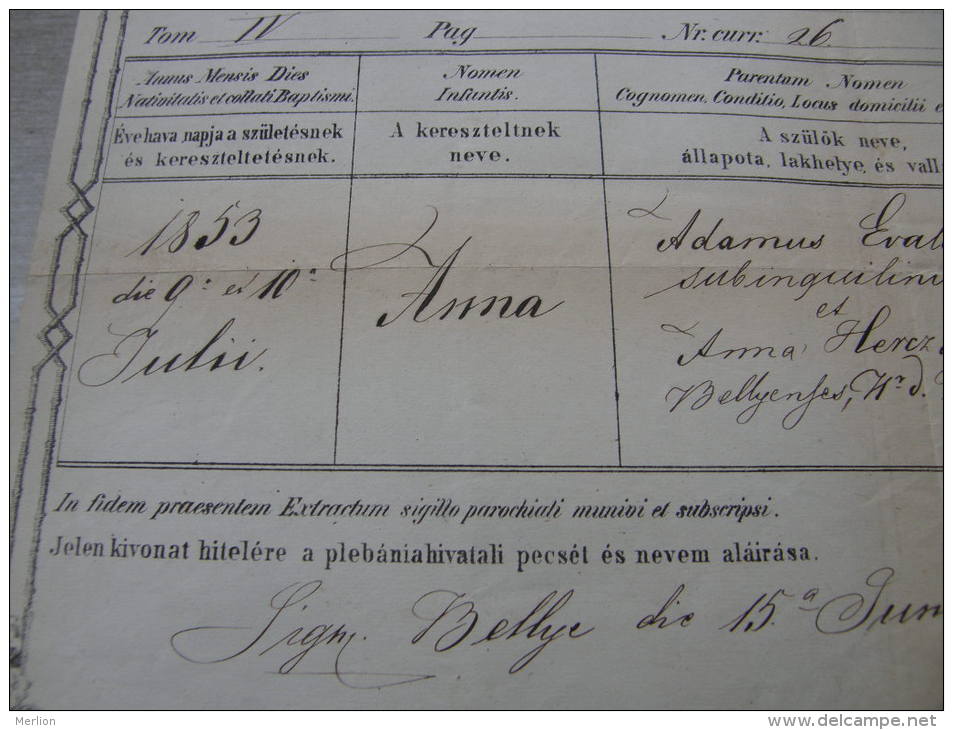 Tom IV Pag Nr. curr: 26.
Annus Mensis Dies
Nativitatis et collati Baptismi.
Nomen
Infantis.
Parentum Nomen
Cognomen, Conditio, Locus domicilii e
Éve hava napja a születésnek
és kereszteltetésnek.
A kereszteltnek
neve.
A szülők neve,
állapota, lakhelye, és vall
1853
die 9ª et 10ª
Julii.
Anna
Adamus
subinquilinu
et
Anna Hercz
Bellyenses, Nr d.
In fidem praesentem Extractum sigillo parochiali munivi et subscripsi.
Jelen kivonat hitelére a plebániahivatali pecsét és nevem aláirása.
Sign. Bellye die 15.ª Jun
Merlion
www.delcampe.net